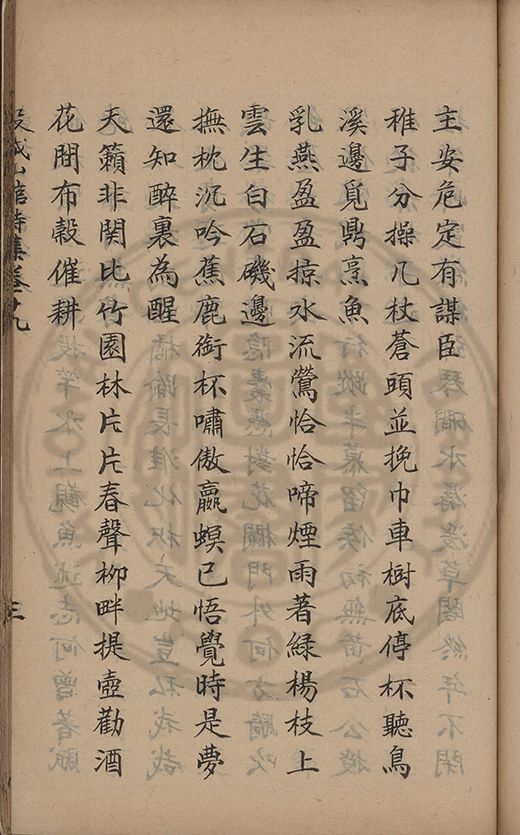 主安危定有謀臣
稚子分操几杖蒼頭並挽巾車樹底停杯聽鳥
溪邊覓鼎烹魚
乳燕盈盈掠水流鶯恰恰啼煙雨著緑楊枝上
雲生白石磯邊
撫枕沉吟蕉鹿銜杯嘯傲蠃螟已悟覺時是夢
還知醉裏為醒
天籟非関比竹園林片片春聲柳畔提壺勸酒
花間布榖催耕
城山館詩集卷十九
三